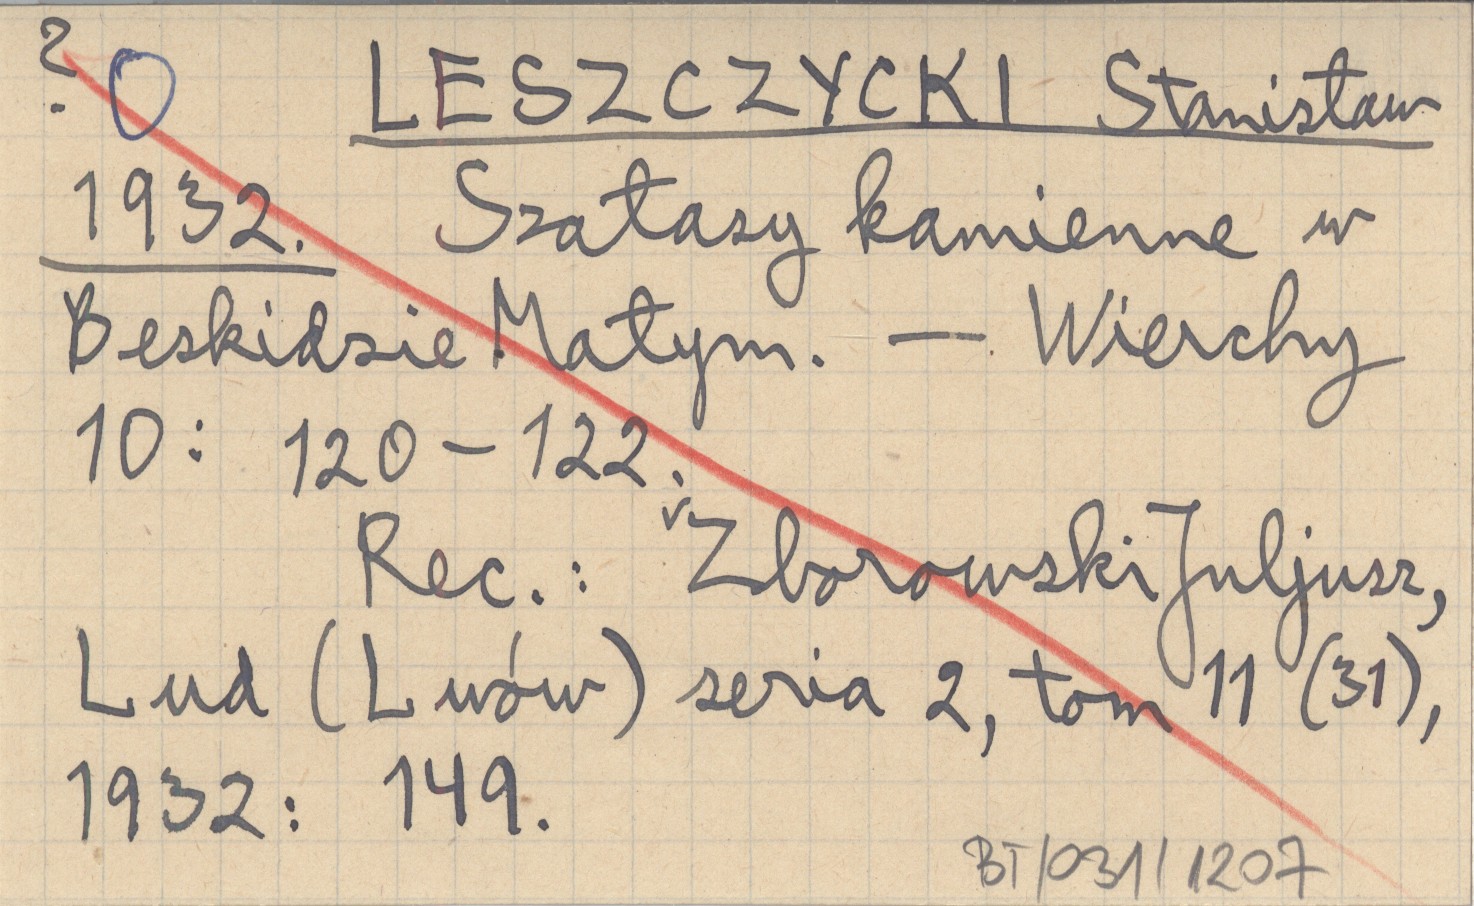 ? O LESZCZYCKI Stanisław
1932. Szałasy kamienne w
Beskidzie Małym. — Wierchy
10: 120-122.
Rec.: Zborowski Juljusz,
Lud (Lwów) seria 2, tom 11 (31),
1932: 149.
BT/031/1207